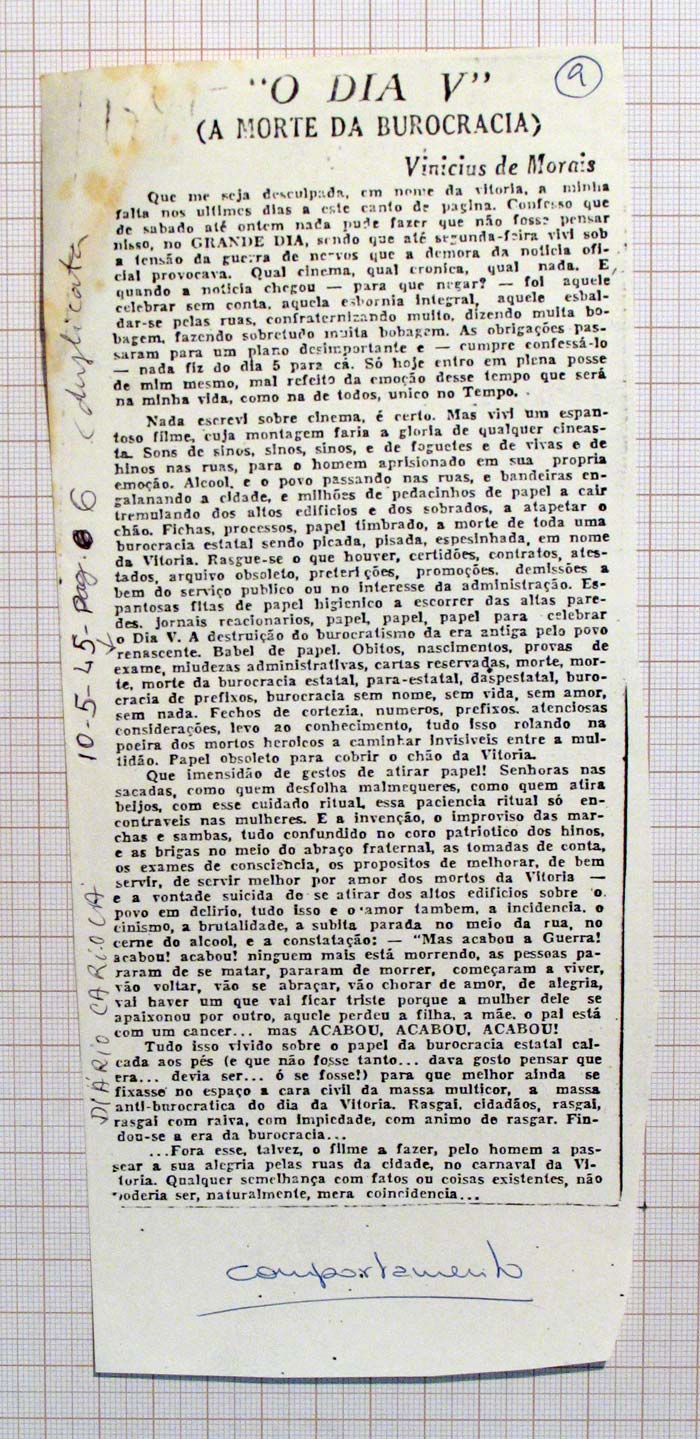 "O DIA V"
a
(A MORTE DA BUROCRACIA)
Vinicius de Morais
Que me seja desculpada, em nome da vitoria, a minha
falta nos ultimes dias a este canto de pagina. Confesso que
de sabado até ontem nada pude fazer que não fosse pensar
nisso, no GRANDE DIA, sendo que até segunda-feira vivi sob
a tensão da guerra de nervos que a demora da noticia ofi-
cial provocava. Qual cinema, qual cronica, qual nada. E,
quando a noticia chegou — para que negar? — foi aquele
celebrar sem conta, aquela esbornia integral, aquele esbal-
dar-se pelas ruas, confraternizando muito, dizendo muita bo-
bagem, fazendo sobretudo muita bobagem. As obrigações pas-
saram para um plano desimportante e — cumpre confessá-lo
— nada fiz do dia 5 para cá. Só hoje entro em plena posse
de mim mesmo, mal refeito da emoção desse tempo que será
na minha vida, como na de todos, unico no Tempo.
Nada escrevi sobre cinema, é certo. Mas vivi um espan-
toso filme, cuja montagem faria a gloria de qualquer cineas-
ta. Sons de sinos, sinos, sinos, e de foguetes e de vivas e de
hinos nas ruas, para o homem aprisionado em sua propria
emoção. Alcool, e o povo passando nas ruas, e bandeiras en-
galanando a cidade, e milhões de pedacinhos de papel a cair
tremulando dos altos edificios e dos sobrados, a atapetar o
chão. Fichas, processos, papel timbrado, a morte de toda uma
burocracia estatal sendo picada, pisada, espesinhada, em nome
da Vitoria. Rasgue-se o que houver, certidões, contratos, ates-
tados, arquivo obsoleto, preterições, promoções, demissões a
bem do serviço publico ou no interesse da administração. Es-
pantosas fitas de papel higienico a escorrer das altas pare-
des, jornais reacionarios, papel, papel, papel para celebrar
o Dia V. A destruição do burocratismo da era antiga pelo povo
renascente. Babel de papel. Obitos, nascimentos, provas de
exame, miudezas administrativas, cartas reservadas, morte, mor-
te, morte da burocracia estatal, para-estatal, daspestatal, buro-
cracia de prefixos, burocracia sem nome, sem vida, sem amor,
sem nada. Fechos de cortezia, numeros, prefixos, atenciosas
considerações, levo ao conhecimento, tudo isso rolando na
poeira dos mortos heroicos a caminhar invisiveis entre a mul-
tidão. Papel obsoleto para cobrir o chão da Vitoria.
Que imensidão de gestos de atirar papel! Senhoras nas
sacadas, como quem desfolha malmequeres, como quem atira
beijos, com esse cuidado ritual, essa paciencia ritual só en-
contraveis nas mulheres. E a invenção, o improviso das mar-
chas e sambas, tudo confundido no coro patriotico dos hinos,
e as brigas no meio do abraço fraternal, as tomadas de conta,
os exames de consciencia, os propositos de melhorar, de bem
servir, de servir melhor por amor dos mortos da Vitoria —
e a vontade suicida de se atirar dos altos edificios sobre o
povo em delirio, tudo isso e o amor tambem, a incidencia, o
cinismo, a brutalidade, a subita parada no meio da rua, no
cerne do alcool, e a constatação: — "Mas acabou a Guerra!
acabou! acabou! ninguem mais está morrendo, as pessoas pa-
raram de se matar, pararam de morrer, começaram a viver,
vão voltar, vão se abraçar, vão chorar de amor, de alegria,
vai haver um que vai ficar triste porque a mulher dele se
apaixonou por outro, aquele perdeu a filha, a mãe, o pai está
com um cancer... mas ACABOU, ACABOU, ACABOU!
Tudo isso vivido sobre o papel da burocracia estatal cal-
cada aos pés (e que não fosse tanto... dava gosto pensar que
era... devia ser... ó se fosse!) para que melhor ainda se
fixasse no espaço a cara civil da massa multicor, a massa
anti-burocratica do dia da Vitoria. Rasgai, cidadãos, rasgai,
rasgai com raiva, com impiedade, com animo de rasgar. Fin-
dou-se a era da burocracia...
...Fora esse, talvez, o filme a fazer, pelo homem a pas-
sear a sua alegria pelas ruas da cidade, no carnaval da Vi-
toria. Qualquer semelhança com fatos ou coisas existentes, não
poderia ser, naturalmente, mera coincidencia...
DIÁRIO CARIOCA 10-5-45 - pag. 6 (duplicata
comportamento